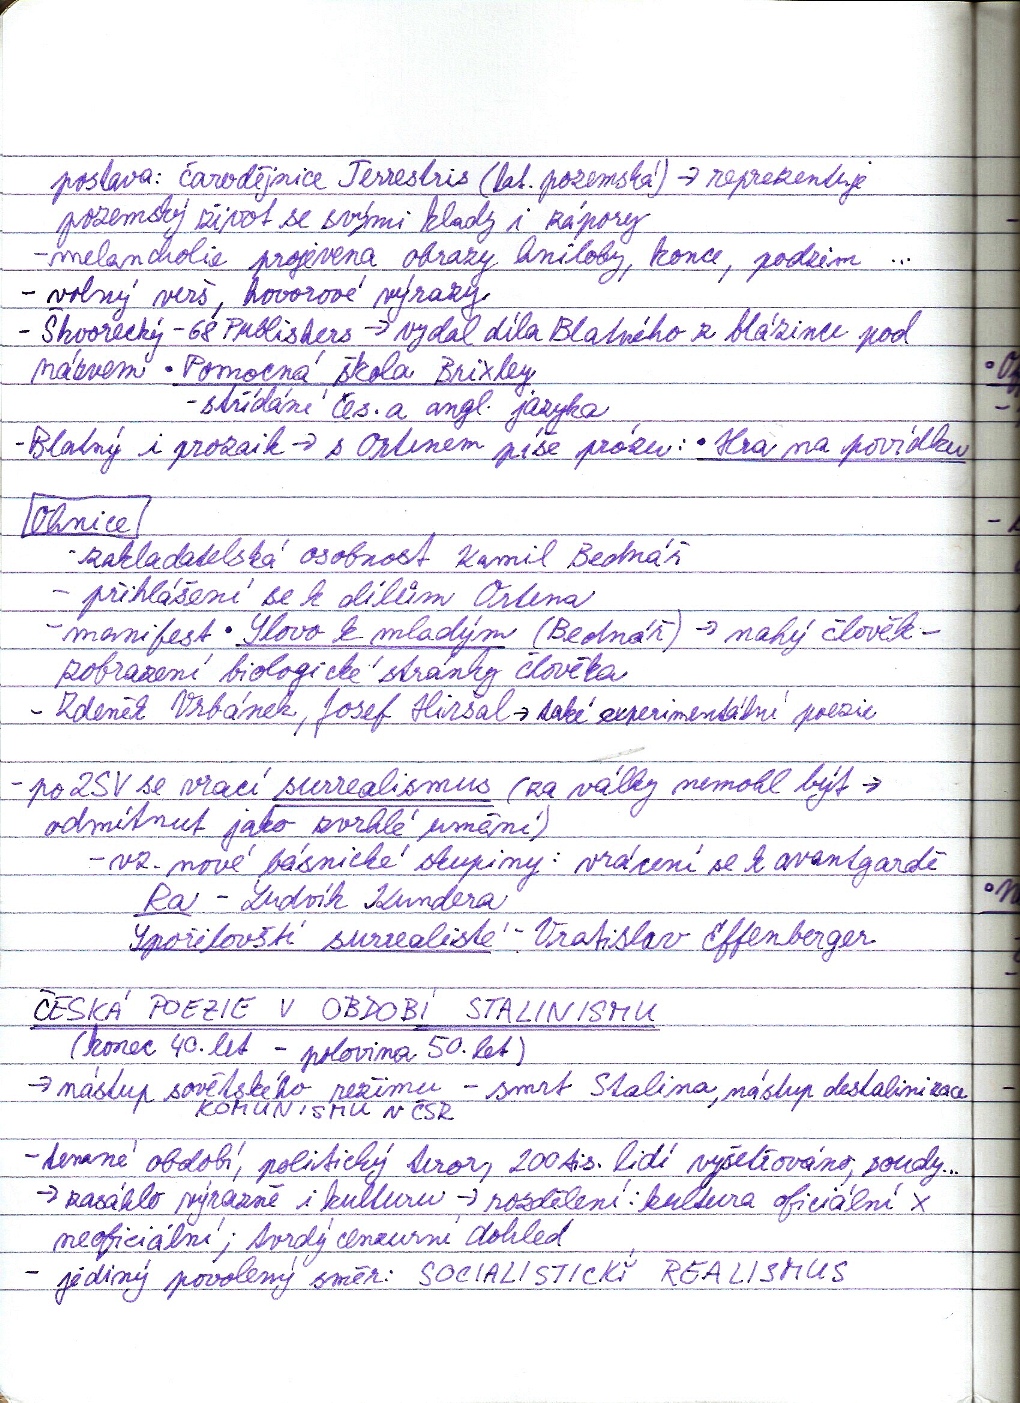 postava: čarodějnice Terrestris (lat. pozemská) → reprezentuje
pozemský život se svými klady i zápory
- melancholie projevena obrazy hniloby, konce, podzim ...
- volný verš, hovorové výrazy
- Škvorecký - 68 Publishers → vydal díla Blatného z blázince pod
názvem • Pomocná škola Bixley
- střídání čes. a angl. jazyka
- Blatný i prozaik → s Ortenem píše prózu: • Hra na povídku
Ohnice
- zakladatelská osobnost Kamil Bednář
- přihlášení se k dílům Ortena
- manifest • Slovo k mladým (Bednář) → nahý člověk -
zobrazení biologické stránky člověka
- Zdeněk Vrbánek, Josef Hiršal → také experimentální poezie
- po 2SV se vrací surrealismus (za války nemohl být →
odmítnut jako zvrhlé umění)
- vz. nové básnické skupiny: vrácení se k avantgardě
Ra - Ludvík Kundera
Spořilovští surrealisté - Vratislav Effenberger
ČESKÁ POEZIE V OBDOBÍ STALINISMU
(konec 40. let - polovina 50. let)
→ nástup sovětského režimu - smrt Stalina, nástup destalinizace
KOMUNISMU V ČSR
- temné období, politický teror, 200 tis. lidí vyšetřováno, soudy...
→ zasáhlo výrazně i kulturu → rozdělení: kultura oficiální x
neoficiální; tvrdý cenzurní dohled
- jediný povolený směr: SOCIALISTICKÝ REALISMUS